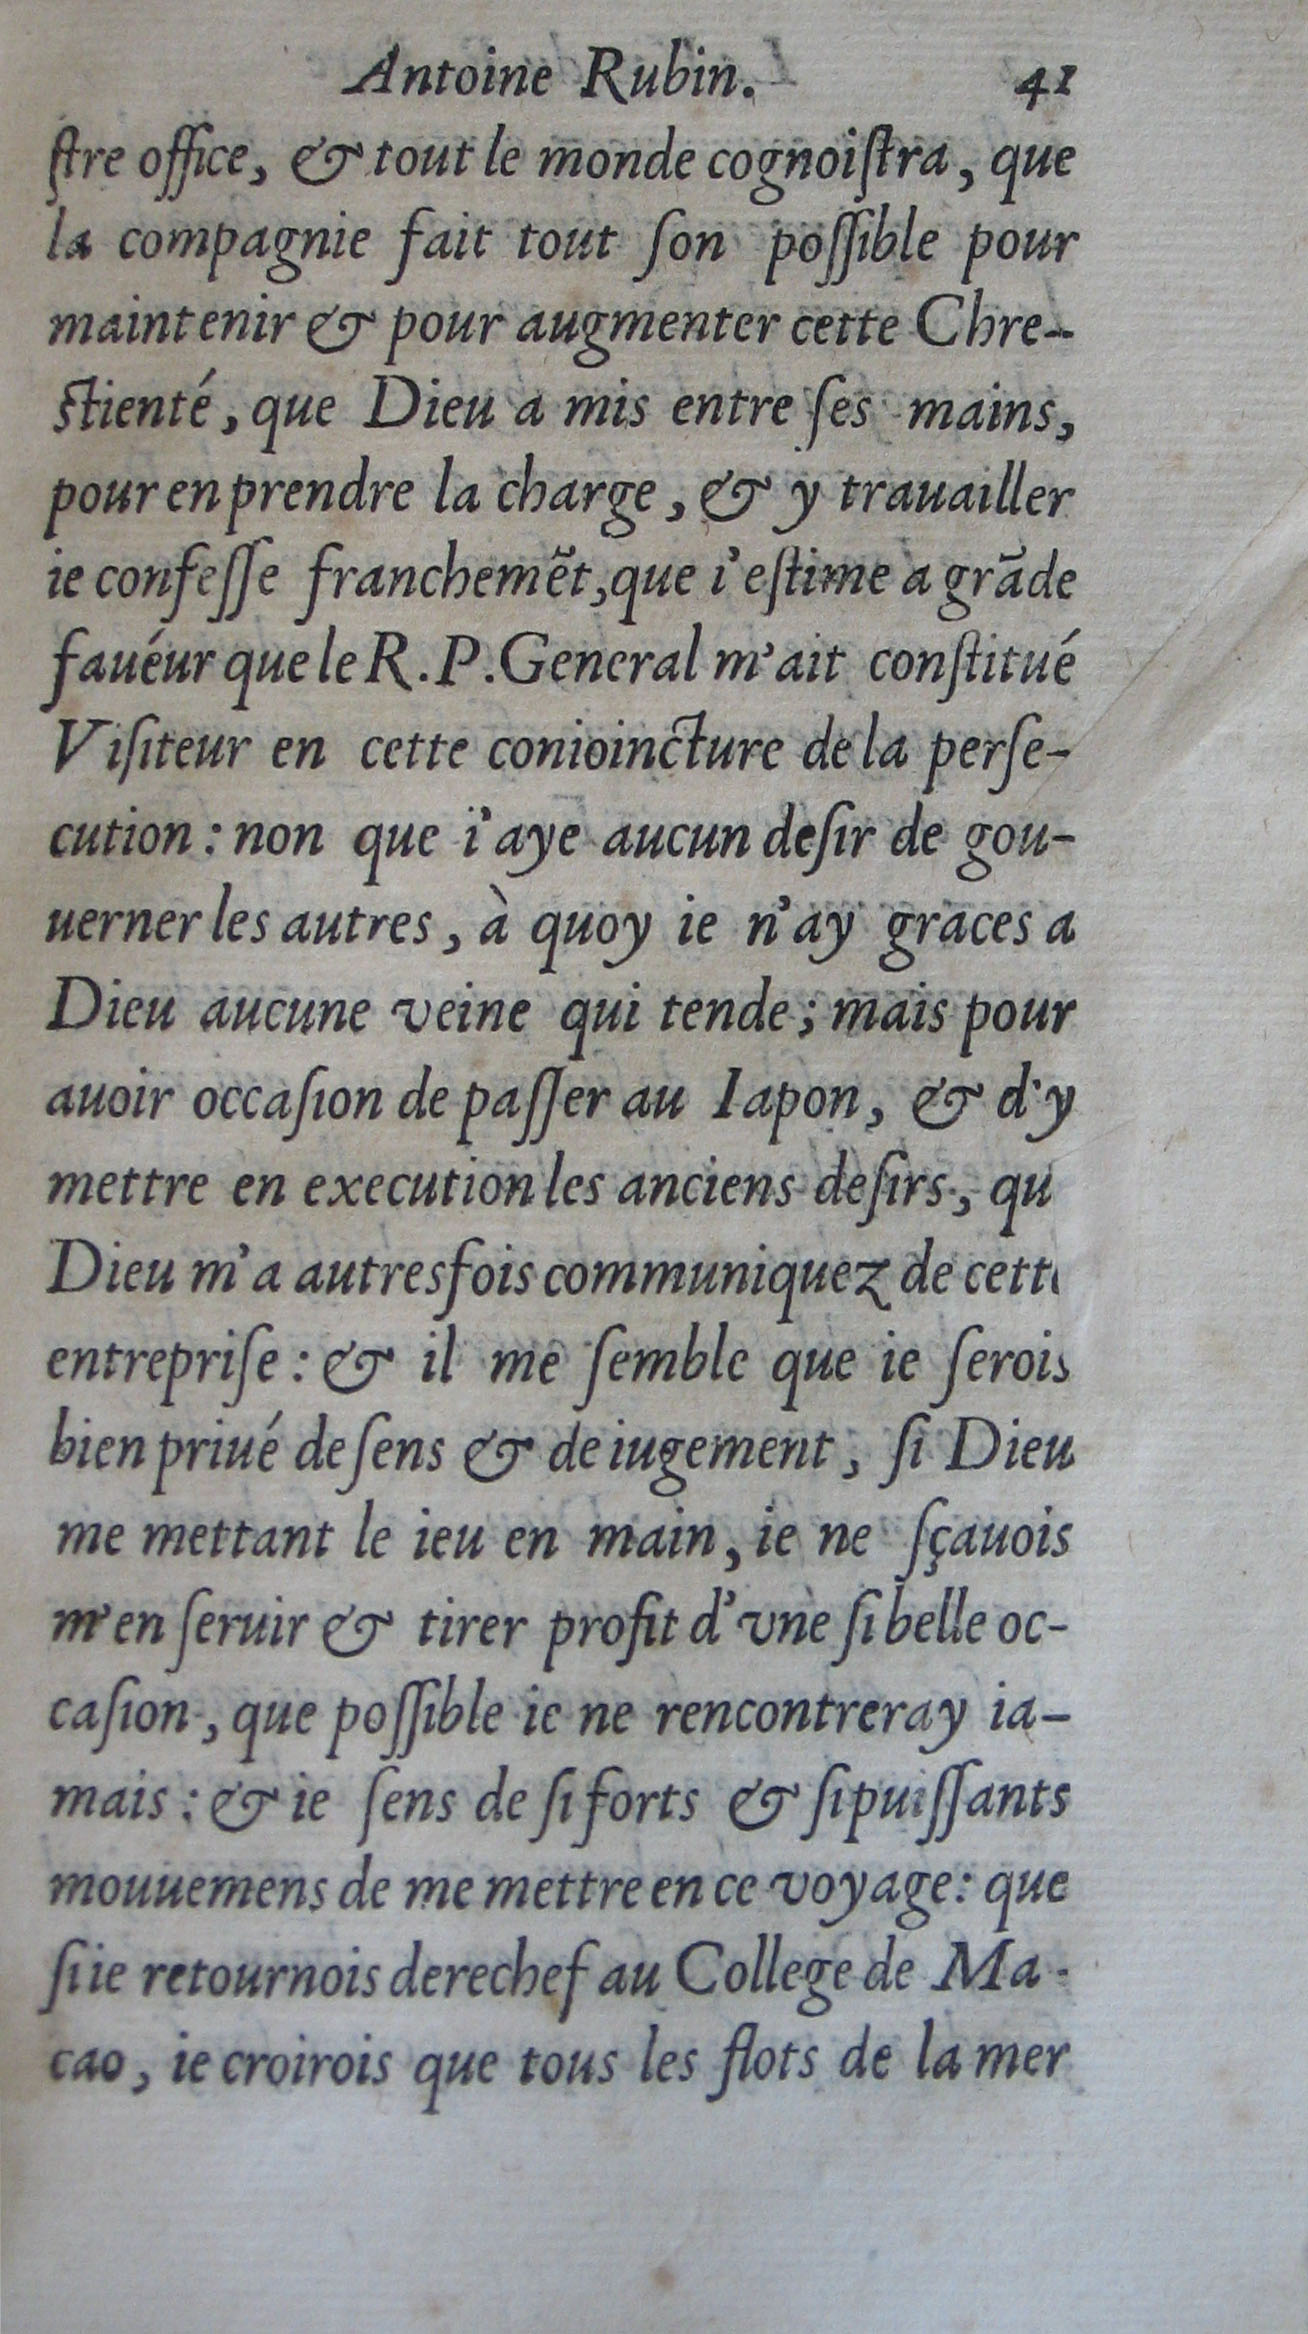 Antoine Rubin. 41
ſtre office, & tout le monde cognoiſtra, que
la compagnie fait tout ſon poſſible pour
maintenir & pour augmenter cette Chre-
ſtienté, que Dieu a mis entre ſes mains,
pour en prendre la charge, & y trauailler
ie confeſſe franchemẽt, que i'eſtime a grãde
fauéur que le R. P. General m'ait conſtitué
Viſiteur en cette conioincture de la perſe-
cution: non que i'aye aucun deſir de gou-
uerner les autres, à quoy ie n'ay graces a
Dieu aucune veine qui tende; mais pour
auoir occaſion de paſſer au Iapon, & d'y
mettre en execution les anciens deſirs, qu
Dieu m'a autresfois communiquez de cette
entrepriſe: & il me ſemble que ie ſerois
bien priué de ſens & de iugement, ſi Dieu
me mettant le ieu en main, ie ne ſçauois
m'en ſeruir & tirer profit d'vne ſi belle oc-
caſion, que poſſible ie ne rencontreray ia-
mais: & ie ſens de ſi forts & ſi puiſſants
mouuemens de me mettre en ce voyage: que
ſi ie retournois derechef au College de Ma-
cao, ie croirois que tous les flots de la mer